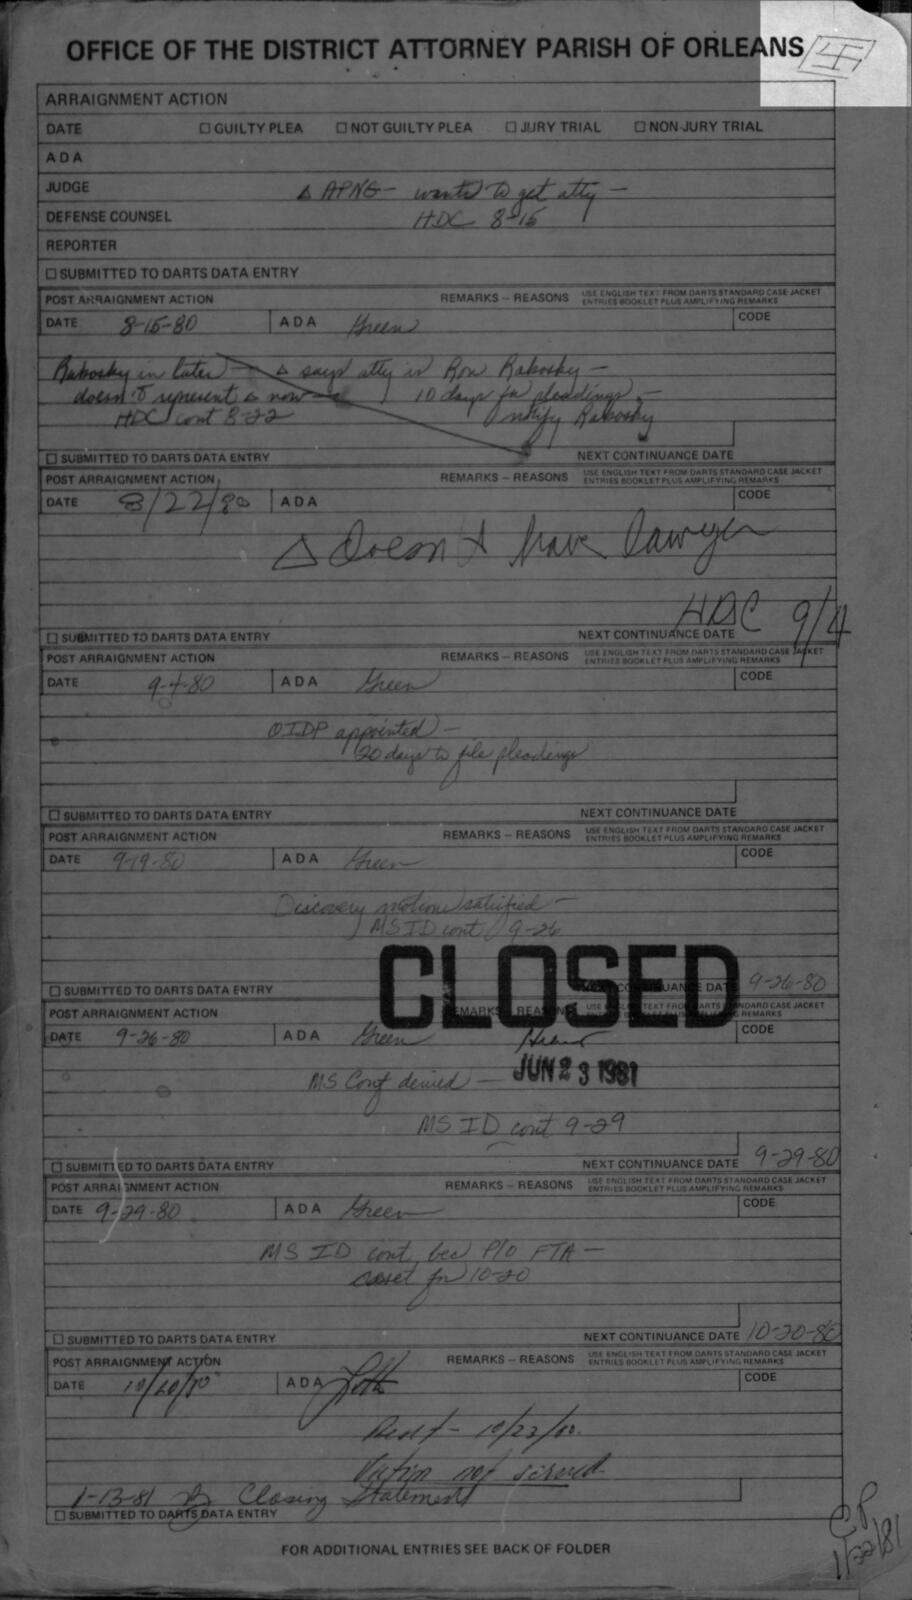 OFFICE OF THE DISTRICT ATTORNEY PARISH OF ORLEANS
ARRAIGNMENT ACTION
DATE GUILTY PLEA NOT GUILTY PLEA JURY TRIAL NON-JURY TRIAL
ADA
JUDGE
Δ APNG - wants to get atty -
DEFENSE COUNSEL HDC 8-15
REPORTER
SUBMITTED TO DARTS DATA ENTRY
POST ARRAIGNMENT ACTION REMARKS - REASONS USE ENGLISH TEXT FROM DARTS STANDARD CASE JACKET
ENTRIES BOOKLET PLUS AMPLIFYING REMARKS
DATE 8-15-80 ADA Green CODE
Rakosky in later - Δ says atty is Ron Rakosky -
doesn't represent Δ now - 10 days for pleadings -
HDC cont 8-22 notify Rakosky
SUBMITTED TO DARTS DATA ENTRY NEXT CONTINUANCE DATE
POST ARRAIGNMENT ACTION REMARKS - REASONS USE ENGLISH TEXT FROM DARTS STANDARD CASE JACKET
ENTRIES BOOKLET PLUS AMPLIFYING REMARKS
DATE 8/22/80 ADA CODE
Δ Doesn't have lawyer
HDC 9/4
SUBMITTED TO DARTS DATA ENTRY NEXT CONTINUANCE DATE
POST ARRAIGNMENT ACTION REMARKS - REASONS USE ENGLISH TEXT FROM DARTS STANDARD CASE JACKET
ENTRIES BOOKLET PLUS AMPLIFYING REMARKS
DATE 9-4-80 ADA Green CODE
OIDP appointed -
20 days to file pleadings
SUBMITTED TO DARTS DATA ENTRY NEXT CONTINUANCE DATE
POST ARRAIGNMENT ACTION REMARKS - REASONS USE ENGLISH TEXT FROM DARTS STANDARD CASE JACKET
ENTRIES BOOKLET PLUS AMPLIFYING REMARKS
DATE 9-19-80 ADA Green CODE
Discovery motions satisfied -
MS ID cont 9-26
CLOSED
SUBMITTED TO DARTS DATA ENTRY NEXT CONTINUANCE DATE 9-26-80
POST ARRAIGNMENT ACTION REMARKS - REASONS USE ENGLISH TEXT FROM DARTS STANDARD CASE JACKET
ENTRIES BOOKLET PLUS AMPLIFYING REMARKS
DATE 9-26-80 ADA Green CODE
JUN 23 1981
MS Conf denied -
MS ID cont 9-29
SUBMITTED TO DARTS DATA ENTRY NEXT CONTINUANCE DATE 9-29-80
POST ARRAIGNMENT ACTION REMARKS - REASONS USE ENGLISH TEXT FROM DARTS STANDARD CASE JACKET
ENTRIES BOOKLET PLUS AMPLIFYING REMARKS
DATE 9-29-80 ADA Green CODE
MS ID cont bec P/O FTA -
reset for 10-20
SUBMITTED TO DARTS DATA ENTRY NEXT CONTINUANCE DATE 10-20-80
POST ARRAIGNMENT ACTION REMARKS - REASONS USE ENGLISH TEXT FROM DARTS STANDARD CASE JACKET
ENTRIES BOOKLET PLUS AMPLIFYING REMARKS
DATE 10/20/80 ADA CODE
Reset - 10/23/80.
Victim not served
1-13-81 Closing Statement
SUBMITTED TO DARTS DATA ENTRY
CP
1/22/81
FOR ADDITIONAL ENTRIES SEE BACK OF FOLDER